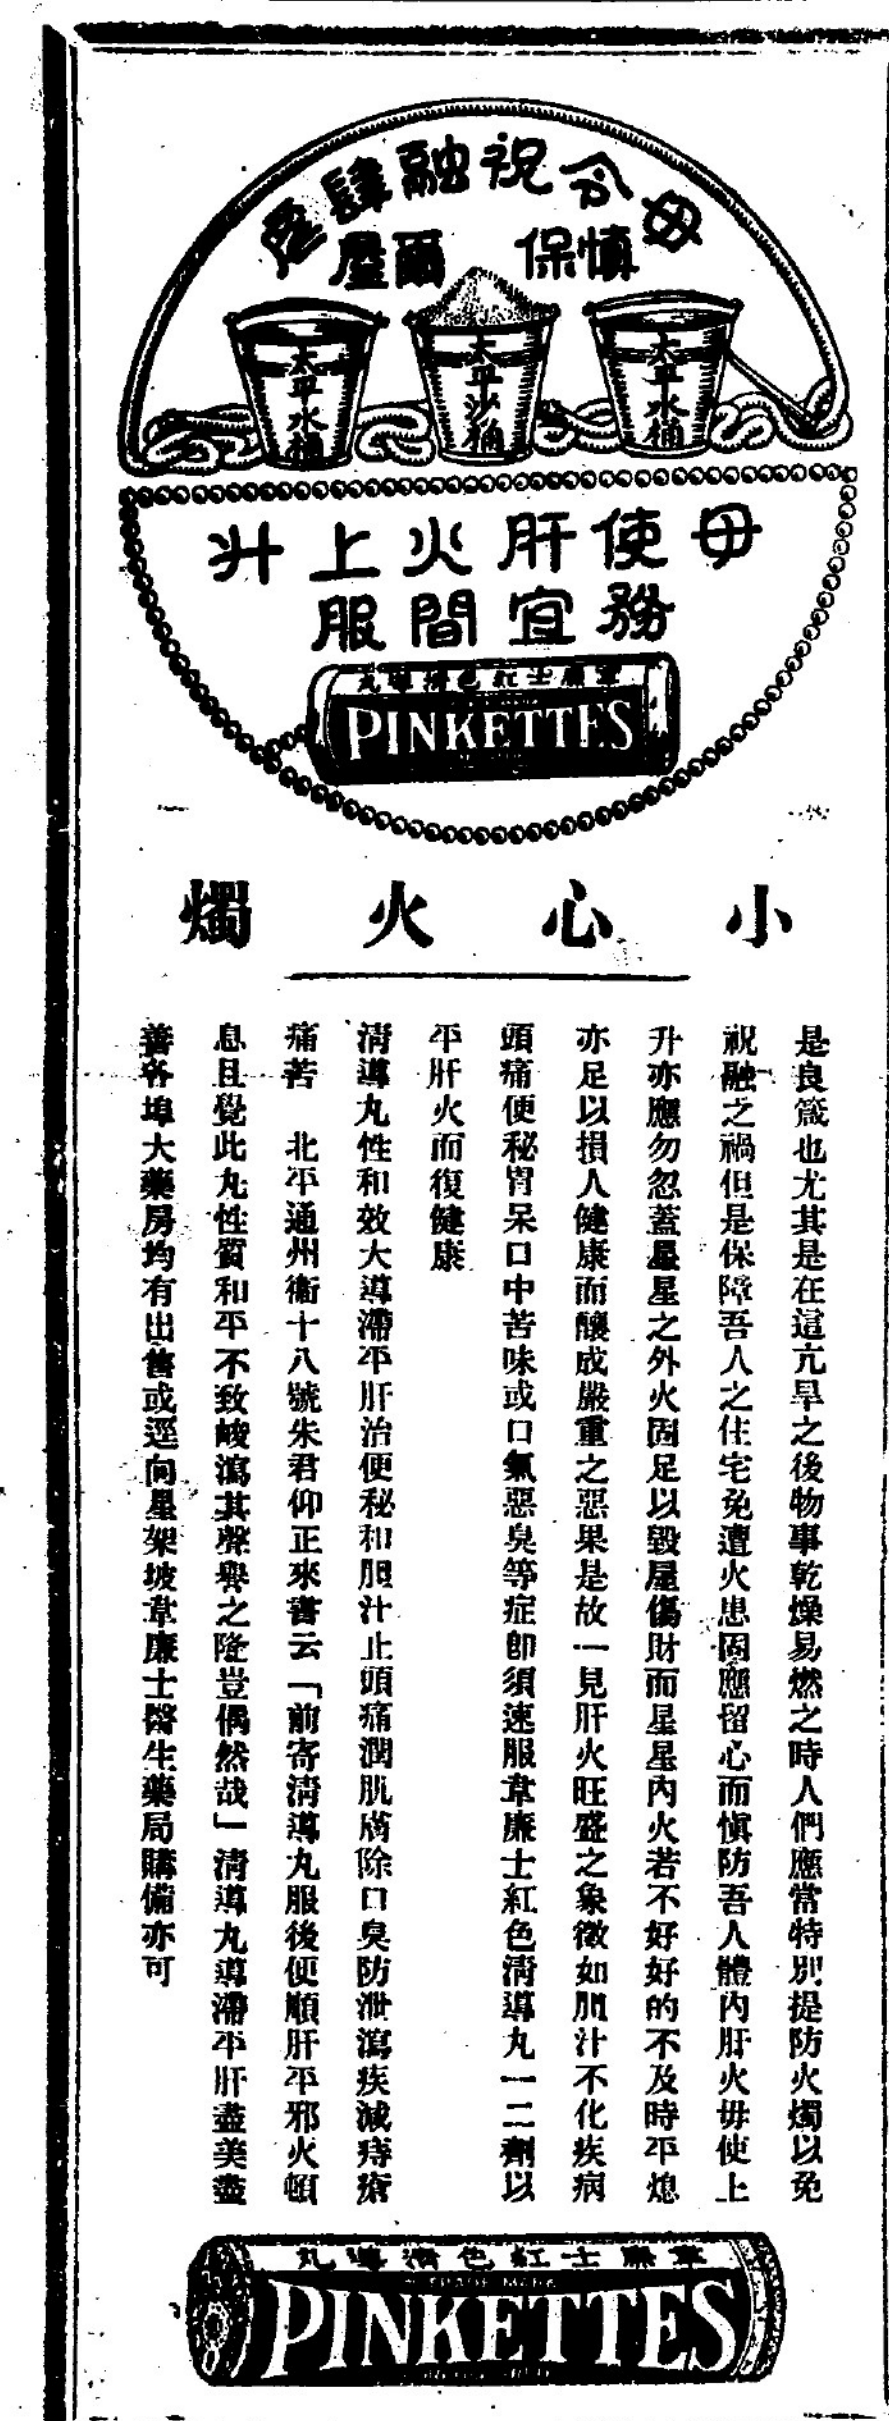 毋令祝融肆虐
慎保爾屋
太平水桶
太平沙桶
太平水桶
毋使肝火上升
務宜間服
韋廉士紅色清導丸
PINKETTES
小心火燭
是良箴也尤其是在這亢旱之後物事乾燥易燃之時人們應當特別提防火燭以免
祝融之禍但是保障吾人之住宅免遭火患固應留心而慎防吾人體內肝火毋使上
升亦應勿忽蓋星星之外火固足以毀屋傷財而星星內火若不好好的不及時平熄
亦足以損人健康而釀成嚴重之惡果是故一見肝火旺盛之象徵如胆汁不化疾病
頭痛便秘胃呆口中苦味或口氣惡臭等症即須速服韋廉士紅色清導丸一二劑以
平肝火而復健康
清導丸性和效大導滯平肝治便秘和胆汁止頭痛潤肌膚除口臭防泄瀉疾減痔瘡
痛苦　北平通州衞十八號朱君仰正來書云「前寄清導丸服後便順肝平邪火頓
息且覺此丸性質和平不致峻瀉其聲譽之隆豈偶然哉」清導丸導滯平肝盡美盡
善各埠大藥房均有出售或逕向星架坡韋廉士醫生藥局購備亦可
韋廉士紅色清導丸
TRADE MARK
PINKETTES